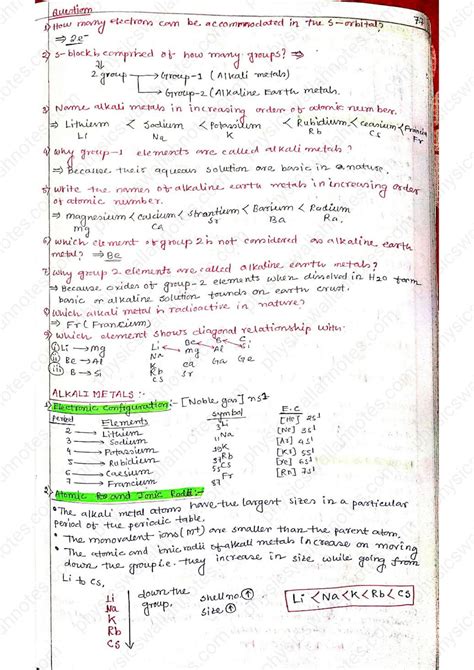 Question
77
1) How many electrons can be accommodated in the S-orbital?
⇒ 2e⁻
2) S-block is comprised of how many groups? ⇒
2 group → Group-1 (Alkali metals)
→ Group-2 (Alkaline Earth metals)
3) Name alkali metals in increasing order of atomic number.
⇒ Lithium < Sodium < Potassium < Rubidium < ceasium < Francium
Li Na K Rb Cs Fr
4) Why group-1 elements are called alkali metals?
⇒ Because their aqueous solution are basic in nature.
5) Write the names of alkaline earth metals in increasing order
of atomic number.
⇒ magnesium < calcium < Strantium < Barium < Radium
mg Ca Sr Ba Ra.
6) Which element of group 2 is not considered as alkaline earth
metal? ⇒ Be
7) Why group 2 elements are called alkaline earth metals?
⇒ Because oxides of group-2 elements when dissolved in H₂O form
basic or alkaline solution founds on earth crust.
8) Which alkali metal is radioactive in nature?
⇒ Fr (Francium)
9) Which element shows diagonal relationship with:
i) Li → mg
ii) Be → Al
iii) B → Si
Li Be B C
Na mg Al Si
K ca Ga Ge
Rb Sr
Cs
ALKALI METALS :-
1) Electronic Configuration:- [Noble gas] ns¹
Period Elements Symbol E.C
2 → Lithium ₃Li [He] 2s¹
3 → Sodium ₁₁Na [Ne] 3s¹
4 → Potassium ₁₉K [Ar] 4s¹
5 → Rubidium Rb [Kr] 5s¹
6 → Caesium ₅₅Cs [Xe] 6s¹
7 → Francium Fr [Rn] 7s¹
2) Atomic and Ionic Radii:-
• The alkali metal atoms have the largest sizes in a particular
period of the periodic table.
• The monovalent ions (M⁺) are smaller than the parent atom.
• The atomic and ionic radii of alkali metals increase on moving
down the group i.e. they increase in size while going from
Li to Cs.
Li
Na
K
Rb
Cs
down the group.
shell no. ↑
size ↑
Li < Na < K < Rb < Cs